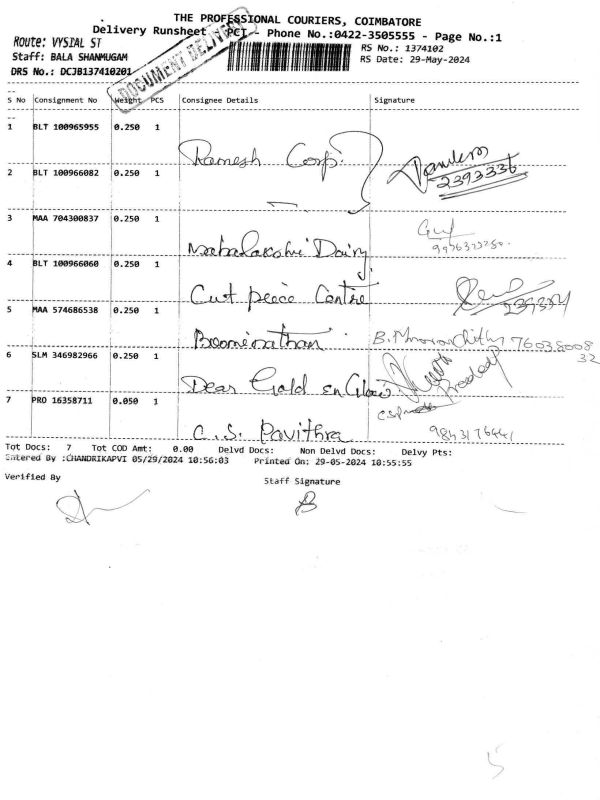 THE PROFESSIONAL COURIERS, COIMBATORE
Delivery Runsheet - PCT - Phone No.:0422-3505555 - Page No.:1
DOCUMENT DELIVERY
Route: VYSIAL ST
RS No.: 1374102
Staff: BALA SHANMUGAM
RS Date: 29-May-2024
DRS No.: DCJB137410201
S No Consignment No Weight PCS Consignee Details Signature
1 BLT 100965955 0.250 1 Ramesh Corp.
2 BLT 100966082 0.250 1 2393336
3 MAA 704300837 0.250 1 Mahalakshi Dairy
4 BLT 100966060 0.250 1 Cut peece Centre
5 MAA 574686538 0.250 1 B. 76038008
6 SLM 346982966 0.250 1 Dear Gold en Glow 32
Pradeep
7 PRO 16358711 0.050 1 C.S. Pavithra
Tot Docs: 7 Tot COD Amt: 0.00 Delvd Docs: Non Delvd Docs: Delvy Pts:
Entered By :CHANDRIKAPVI 05/29/2024 10:56:03 Printed On: 29-05-2024 10:55:55
Verified By Staff Signature
B
5